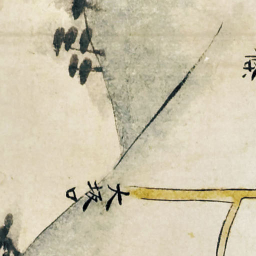 大坂口